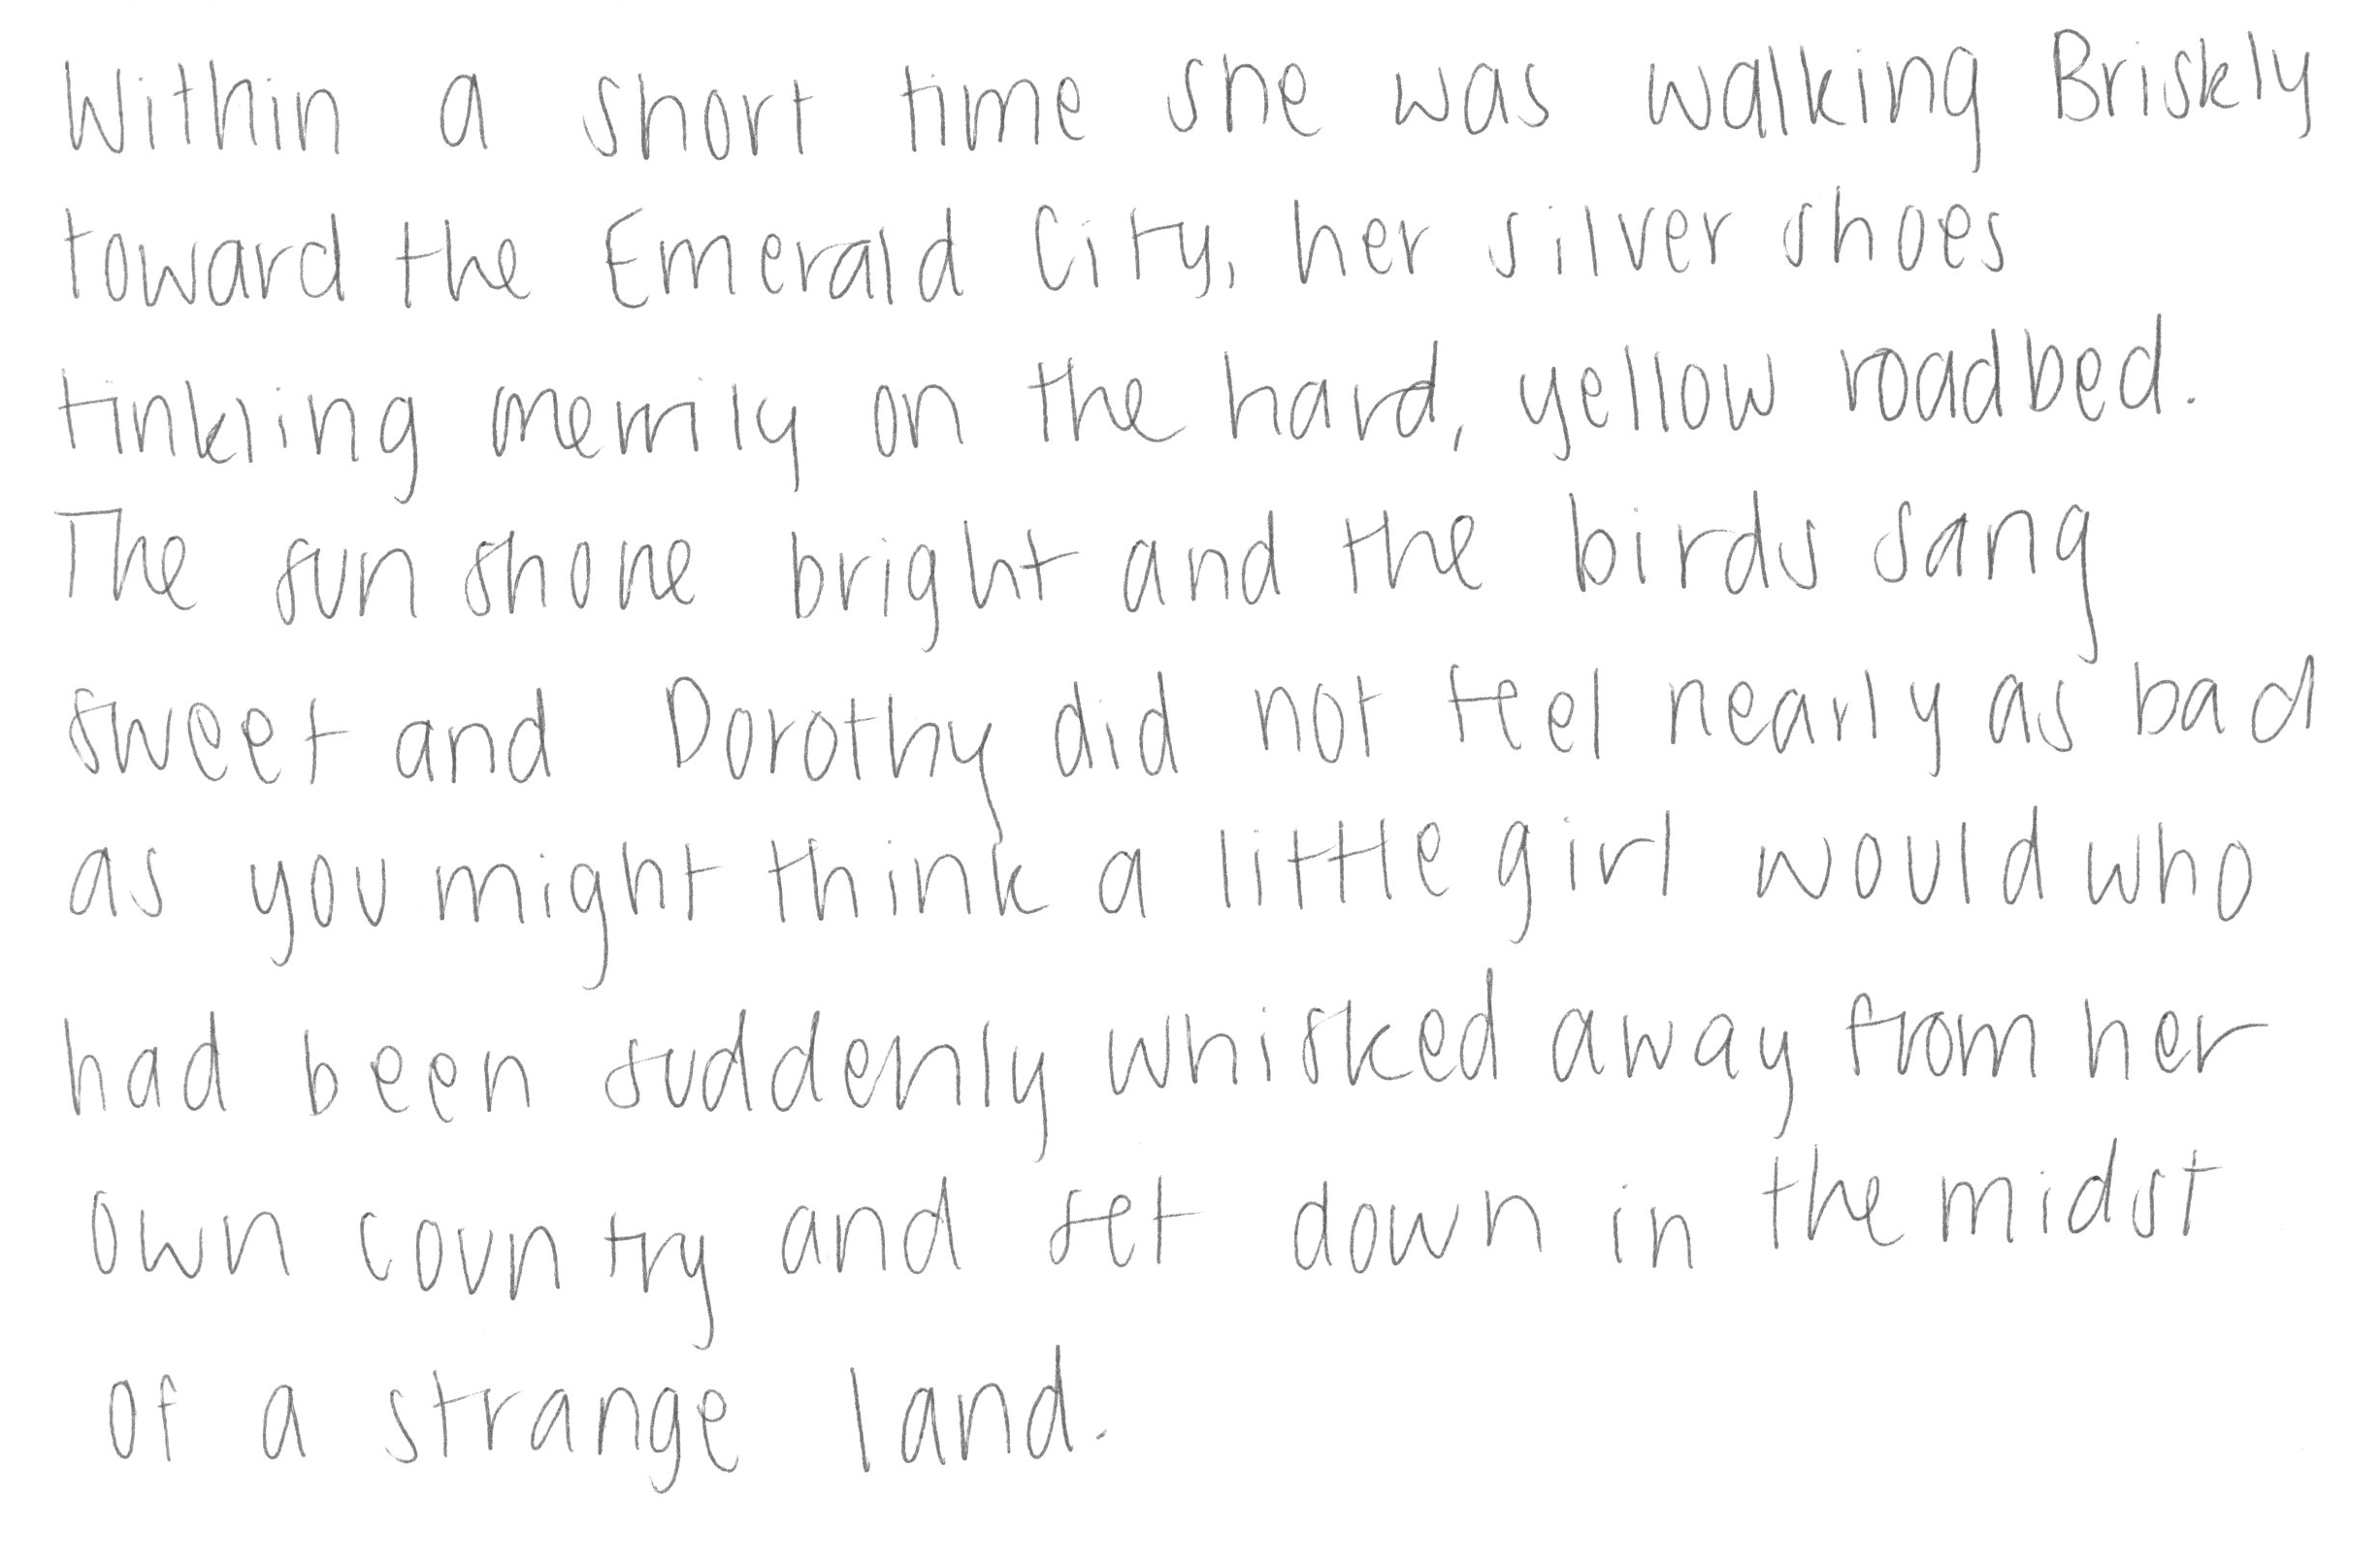 Within a short time she was walking Briskly
toward the Emerald City, her silver shoes
tinkling merrily on the hard, yellow roadbed.
The sun shone bright and the birds sang
sweet and Dorothy did not feel nearly as bad
as you might think a little girl would who
had been suddenly whisked away from her
own country and set down in the midst
of a strange land.